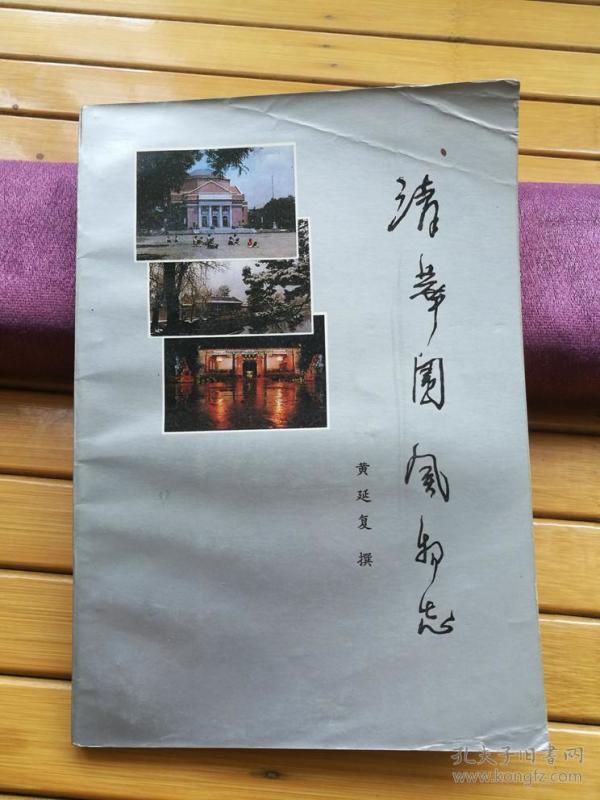 清华园风物志
黄延复 撰
孔夫子旧书网
www.kongfz.com